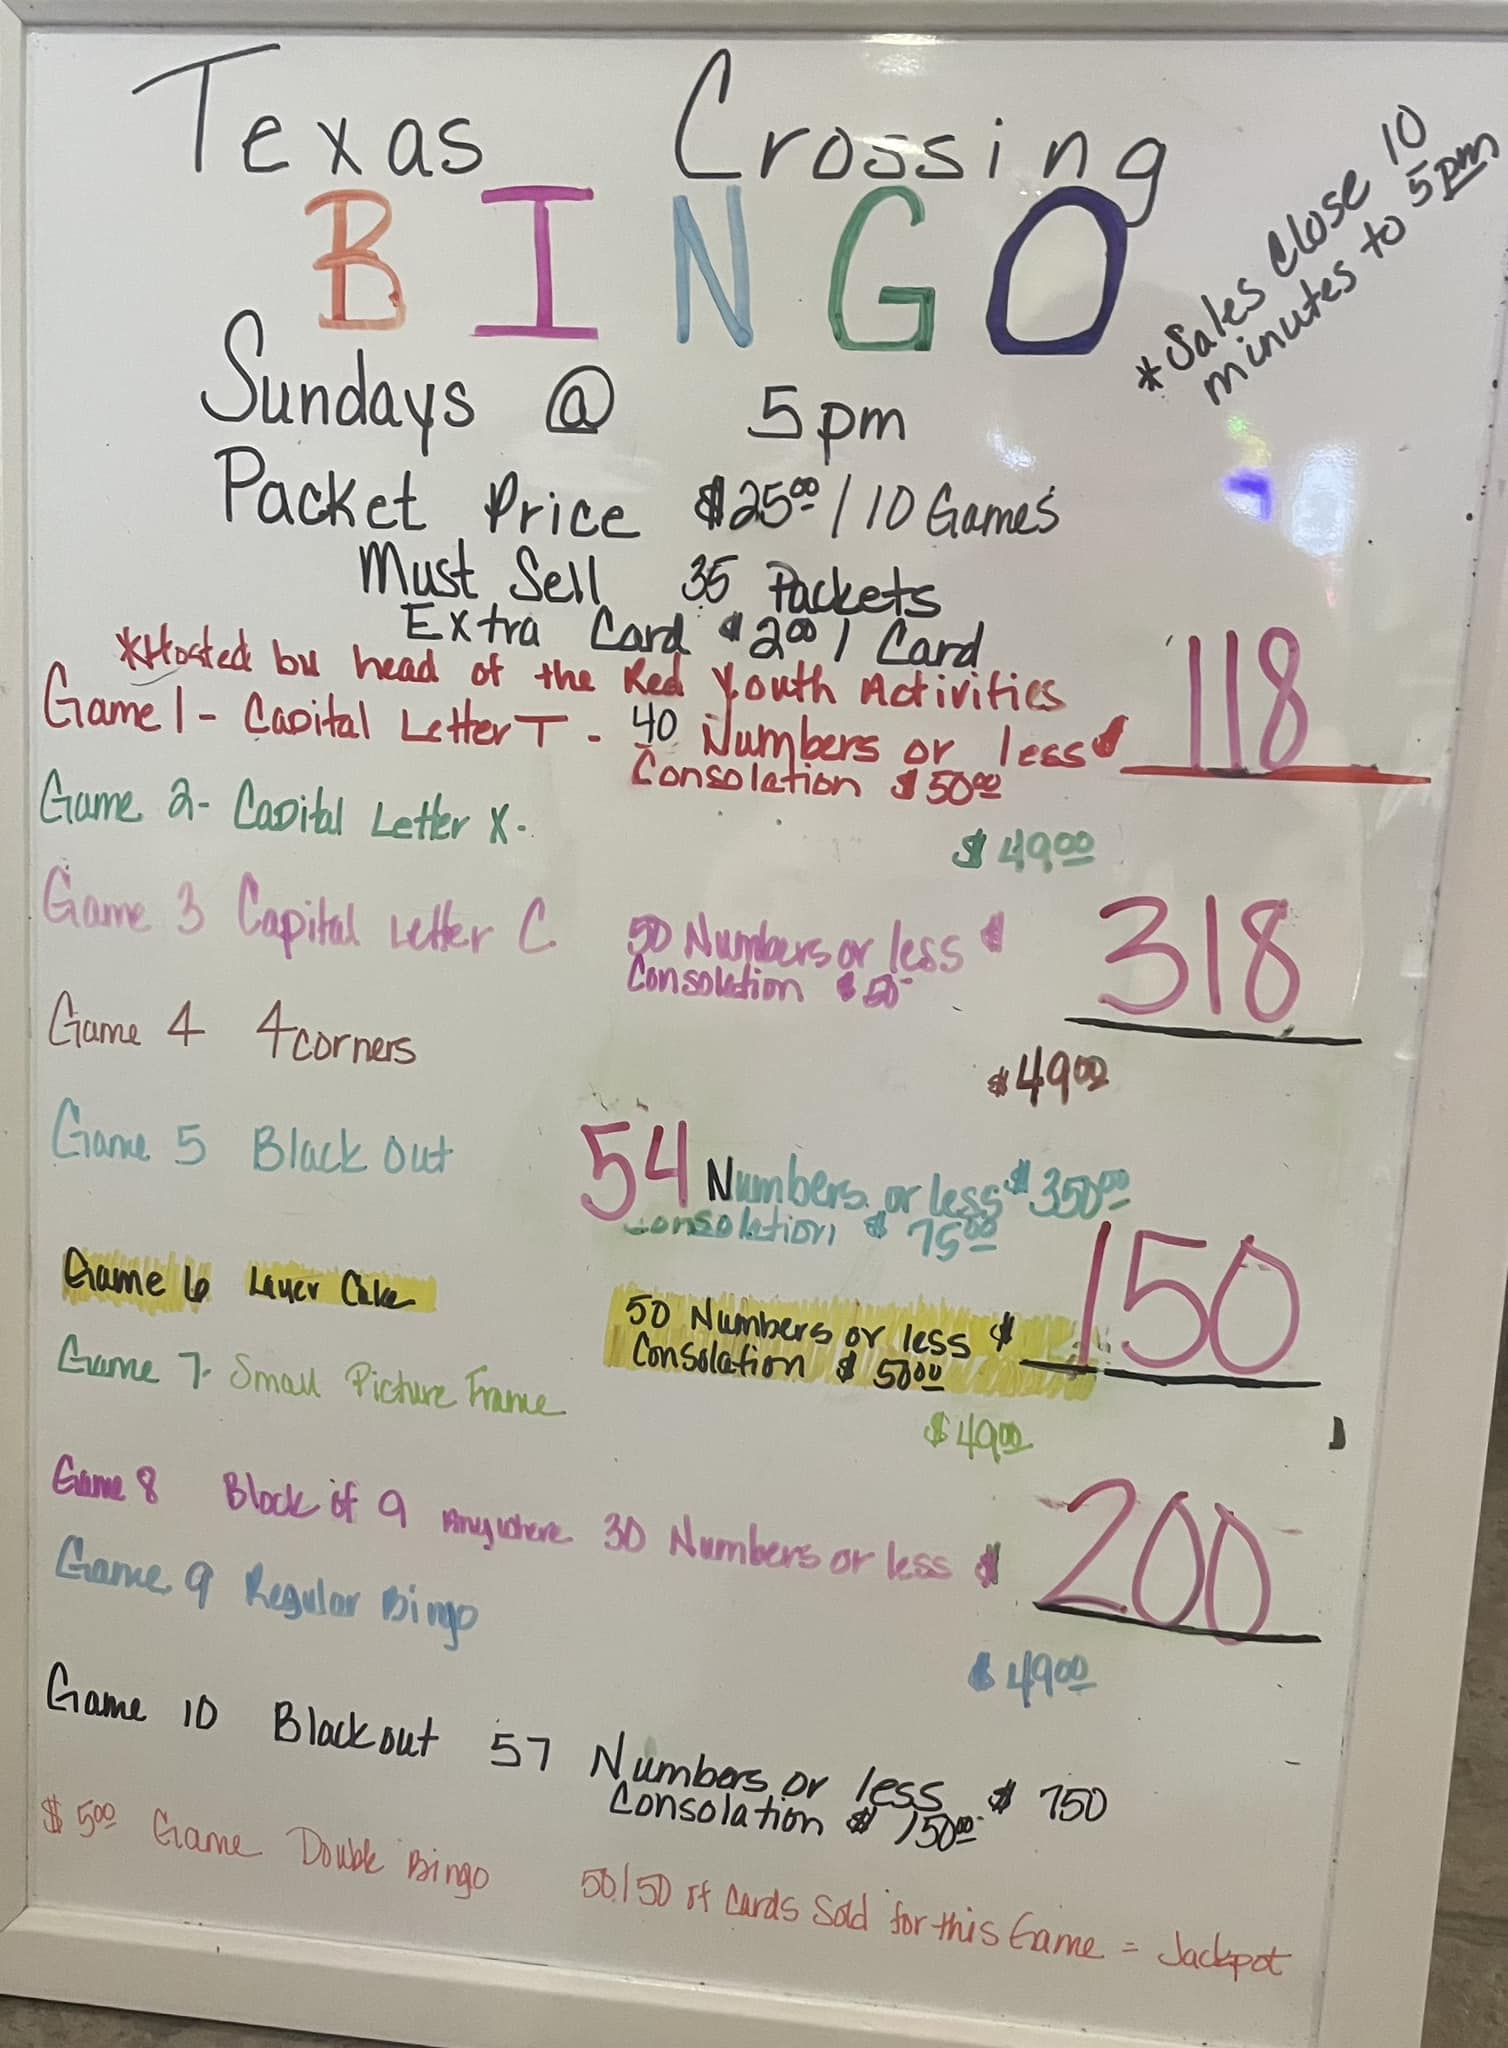 Texas Crossing
BINGO
*Sales Close 10
minutes to 5pm
Sundays @ 5pm
Packet Price $25.00 / 10 Games
Must Sell 35 Packets
Extra Card $2.00 / Card
*Hosted by head of the Red Youth Activities
Game 1 - Capital Letter T - 40 Numbers or less $ 118
Consolation $50.00
Game 2- Capital Letter X-
$49.00
Game 3 Capital Letter C 50 Numbers or less $ 318
Consolation $50
Game 4 4 corners
$49.00
Game 5 Black out 54 Numbers or less $350.00
Consolation $75.00
Game 6 Layer Cake 50 Numbers or less $ 150
Consolation $50.00
Game 7- Small Picture Frame
$49.00
Game 8 Block of 9 Anywhere 30 Numbers or less $ 200
Game 9 Regular Bingo
$49.00
Game 10 Blackout 57 Numbers or less $ 750
Consolation $150.00
$5.00 Game Double Bingo 50/50 of Cards Sold for this Game = Jackpot